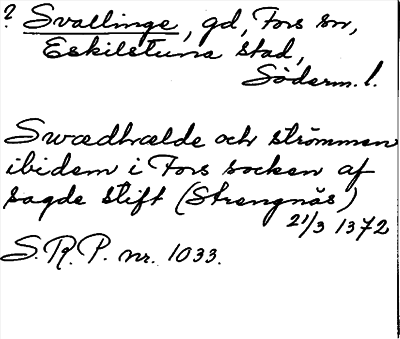 ? Svallinge, gd, Fors sn,
Eskilstuna stad,
Söderm. l.
Swædhælde och strömmen
ibidem i Fors socken af
sagde stift (Strengnäs)
21/3 1372
S. R. P. nr. 1033.